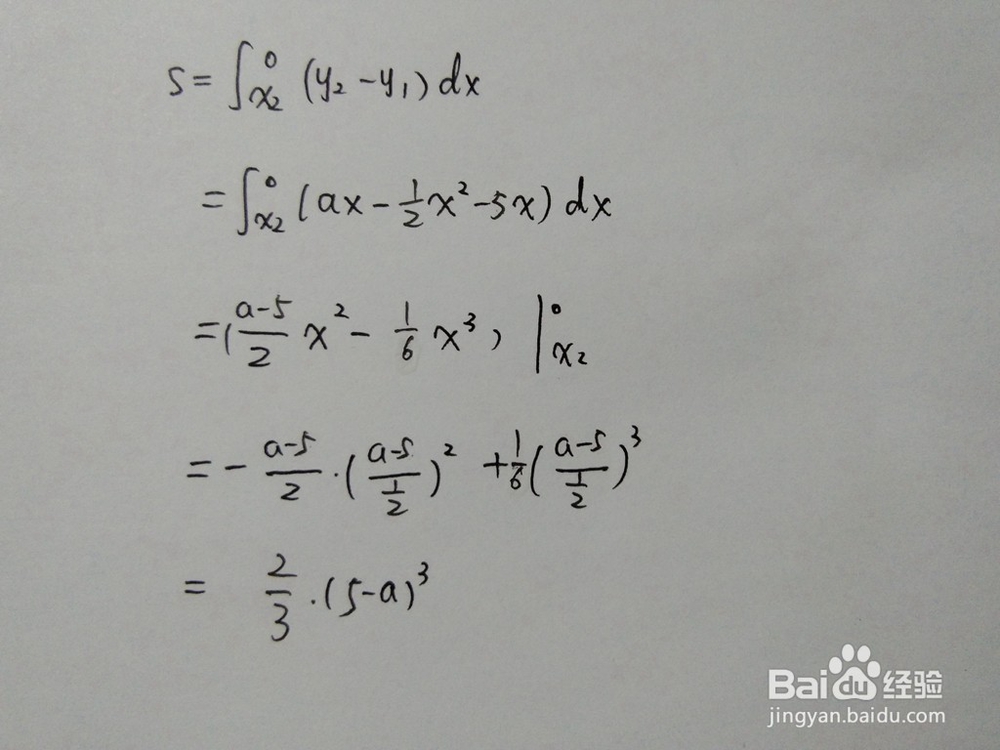 S = ∫_{x₂}^{0} (y₂ - y₁) dx
= ∫_{x₂}^{0} (ax - \frac{1}{2}x² - 5x) dx
= (\frac{a-5}{2} x² - \frac{1}{6} x³) |_{x₂}^{0}
= - \frac{a-5}{2} · (\frac{a-5}{\frac{1}{2}})² + \frac{1}{6} (\frac{a-5}{\frac{1}{2}})³
= \frac{2}{3} · (5-a)³
Baidu 经验
jingyan.baidu.com